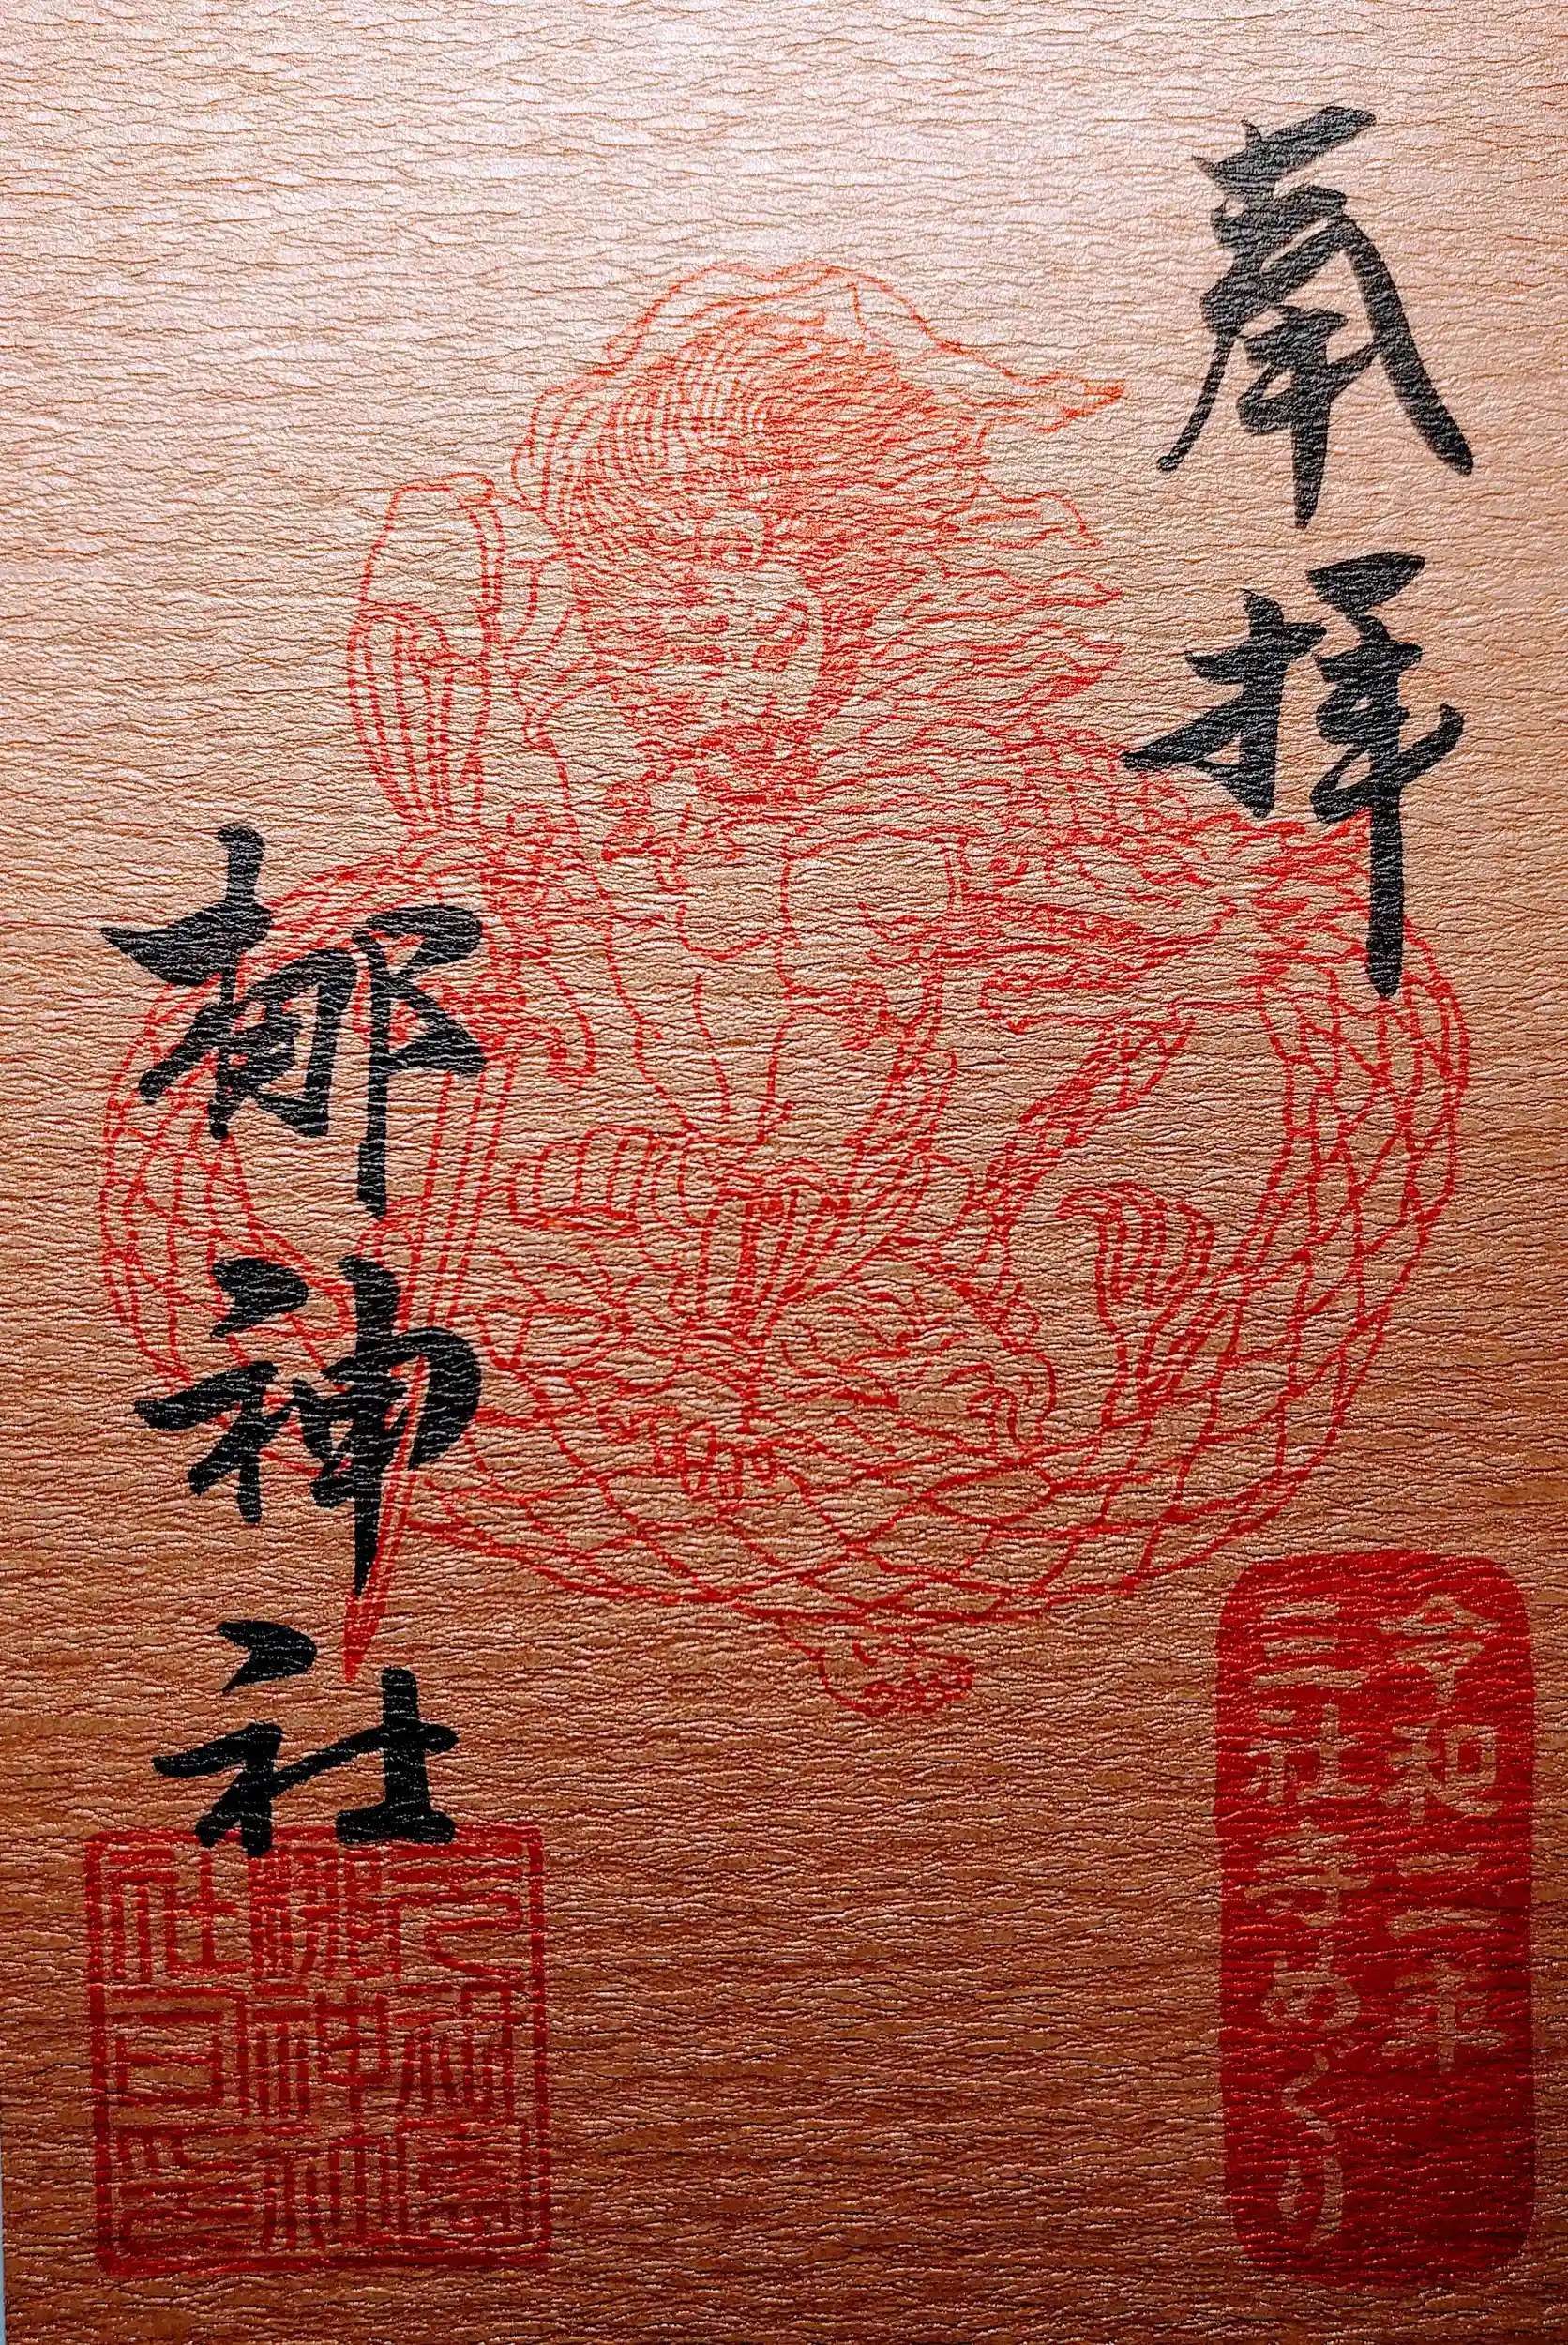 奉拝
令和二年
社寺めぐり
梛神社